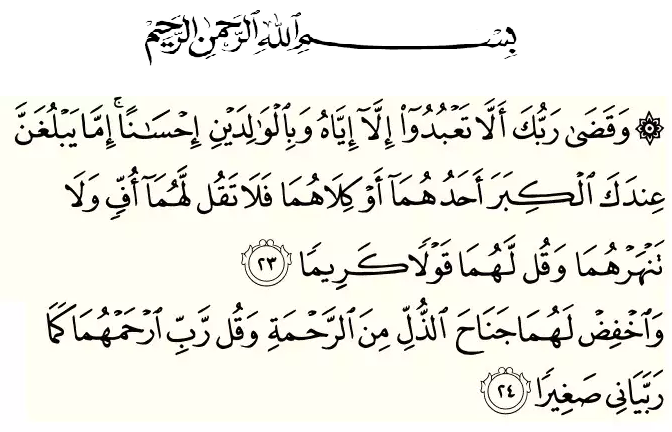 بِسْمِ ٱللَّهِ ٱلرَّحْمَٰنِ ٱلرَّحِيمِ
۞ وَقَضَىٰ رَبُّكَ أَلَّا تَعْبُدُوٓا۟ إِلَّآ إِيَّاهُ وَبِٱلْوَٰلِدَيْنِ إِحْسَٰنًا ۚ إِمَّا يَبْلُغَنَّ
عِندَكَ ٱلْكِبَرَ أَحَدُهُمَآ أَوْ كِلَاهُمَا فَلَا تَقُل لَّهُمَآ أُفٍّ وَلَا
تَنْهَرْهُمَا وَقُل لَّهُمَا قَوْلًا كَرِيمًا ٢٣
وَٱخْفِضْ لَهُمَا جَنَاحَ ٱلذُّلِّ مِنَ ٱلرَّحْمَةِ وَقُل رَّبِّ ٱرْحَمْهُمَا كَمَا
رَبَّيَانِى صَغِيرًا ٢٤